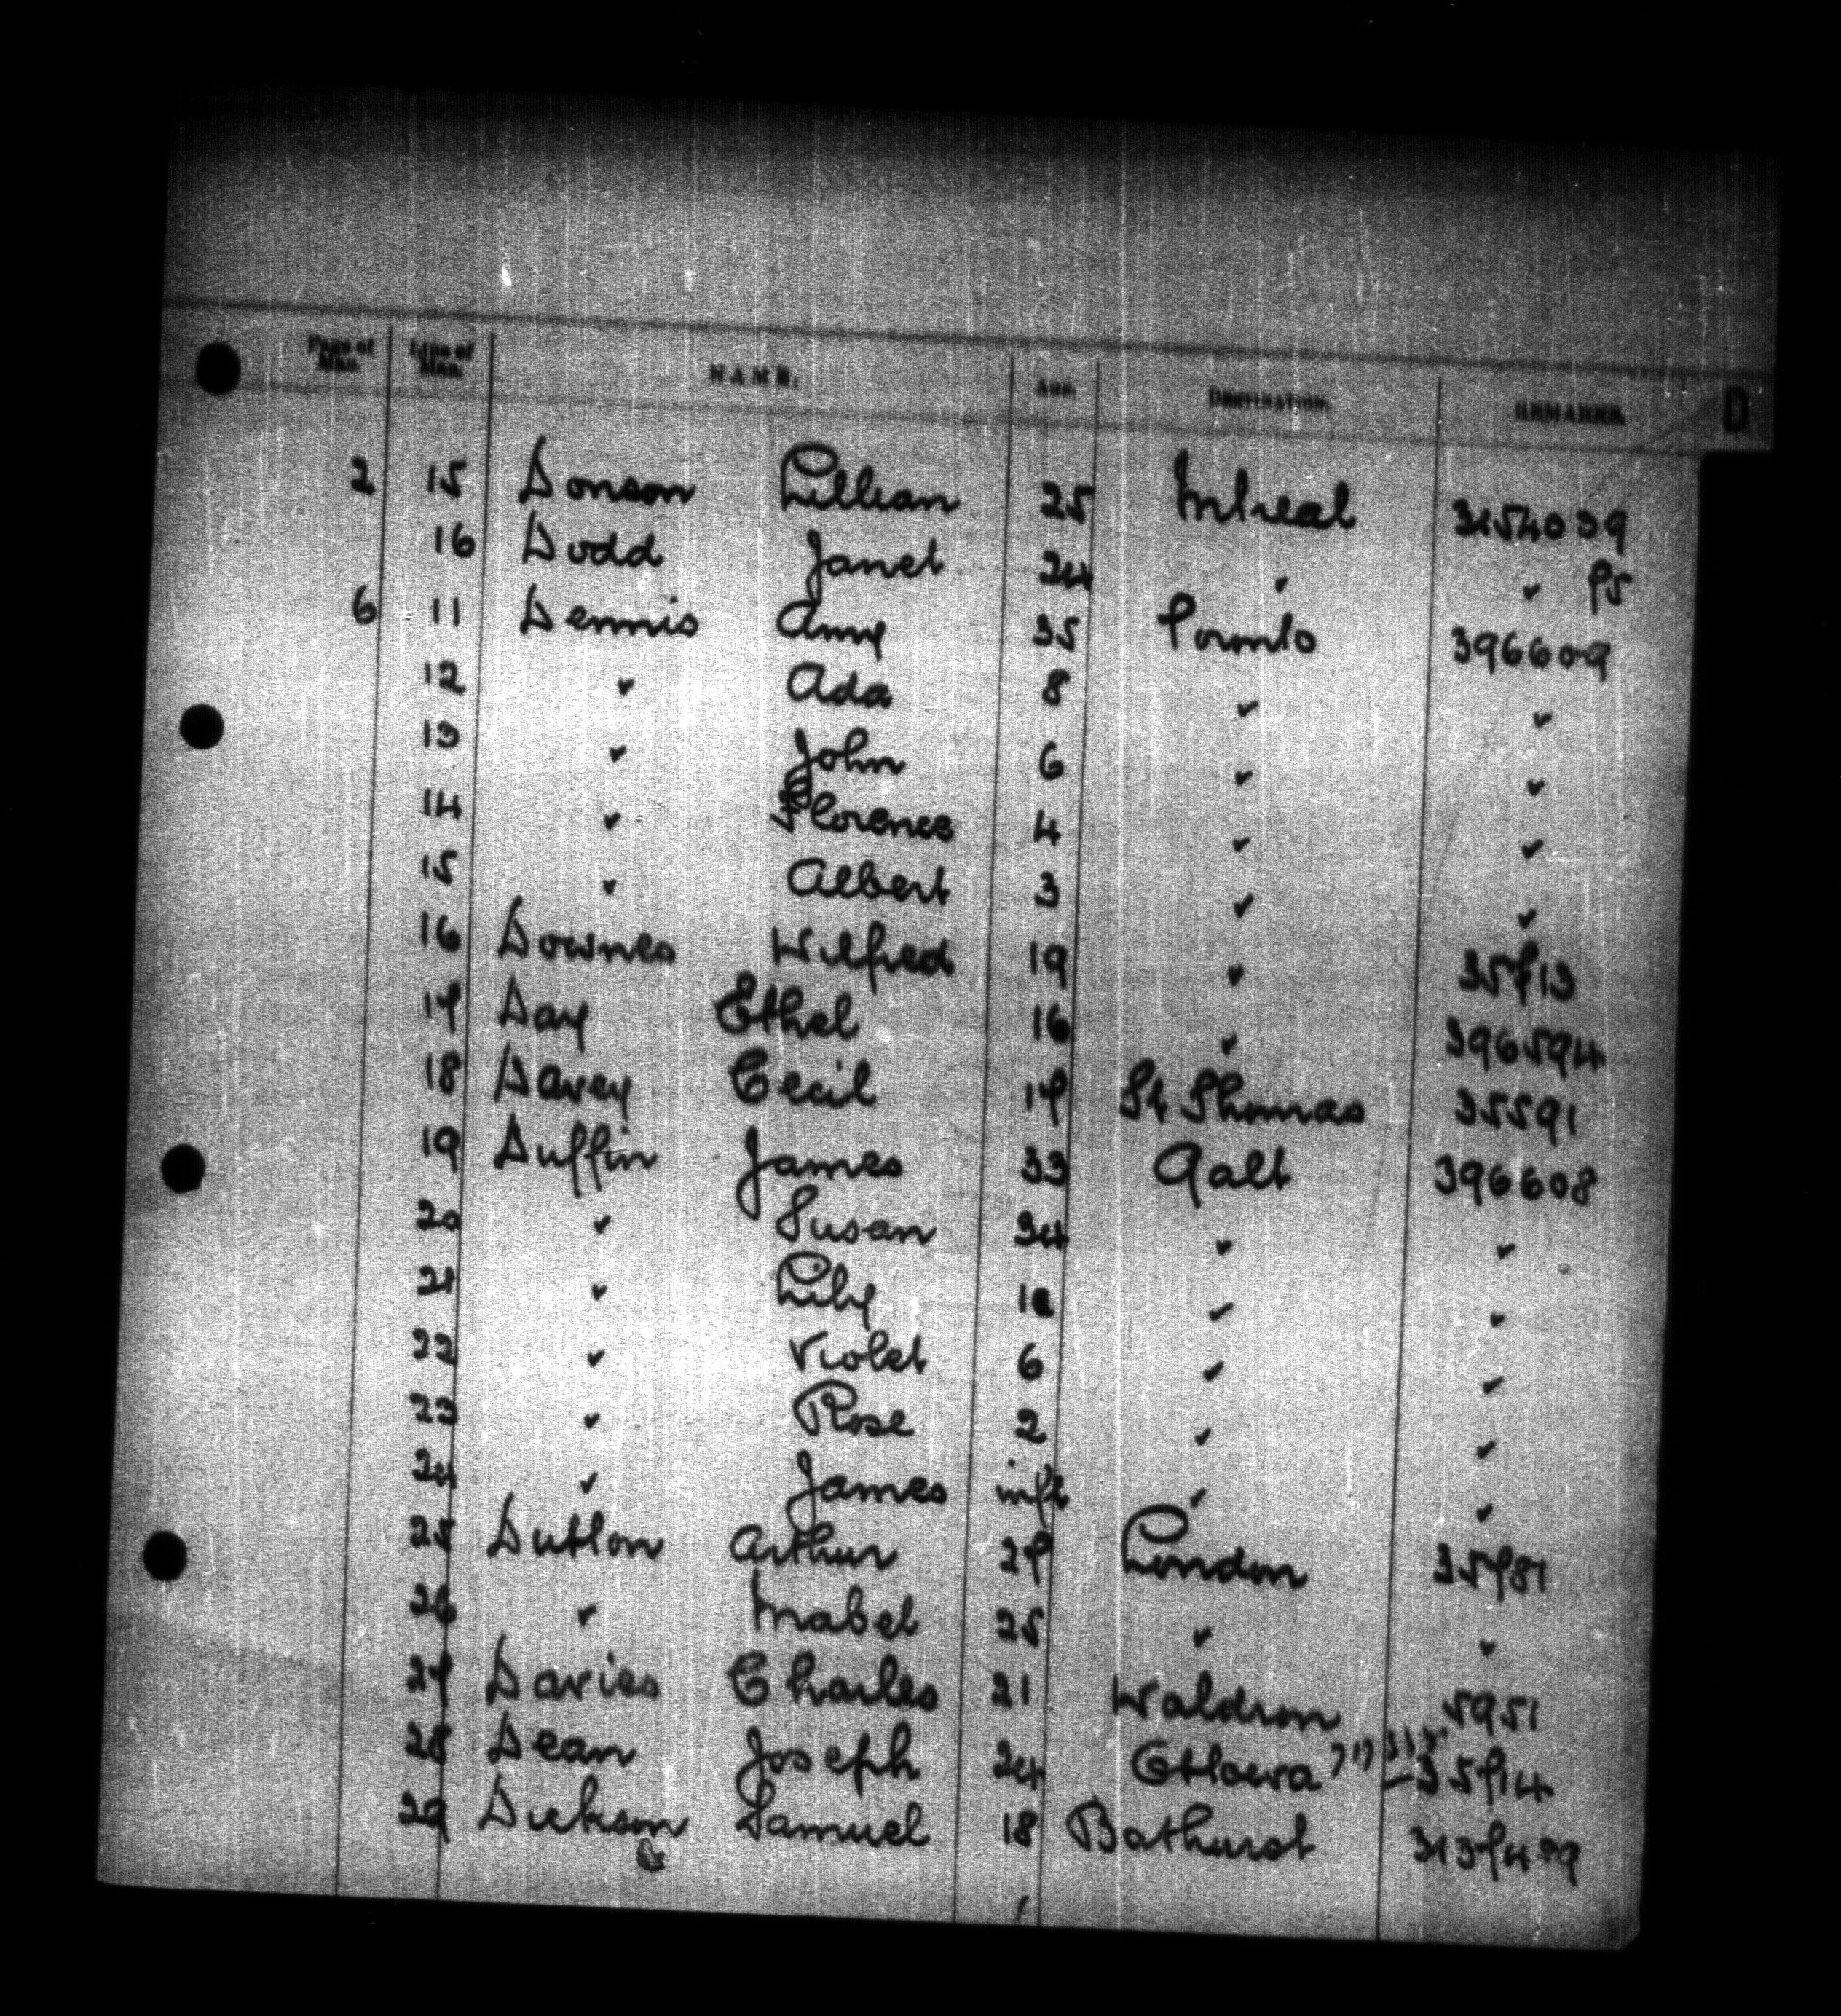 Page of Man. Line of Man. NAME. Age. DESTINATION. REMARKS D
2 15 Donson Lillian 25 Mtreal 3154039
16 Dodd Janet 24 " " 75
6 11 Dennis Amy 35 Toronto 396609
12 " Ada 8 " "
13 " John 6 " "
14 " Florence 4 " "
15 " Albert 3 " "
16 Downes Wilfred 19 " 35713
17 Day Ethel 16 " 396594
18 Davey Cecil 17 St Thomas 35591
19 Duffin James 33 Galt 396608
20 " Susan 34 " "
21 " Lily " "
22 " Violet 6 " "
23 " Rose 2 " "
24 " James inft " "
25 Dutton Arthur 27 London 35781
26 " Mabel 25 " "
27 Davies Charles 21 Waldron 5951
28 Dean Joseph 24 Ottawa 35714
29 Dickson Samuel 18 Bathurst